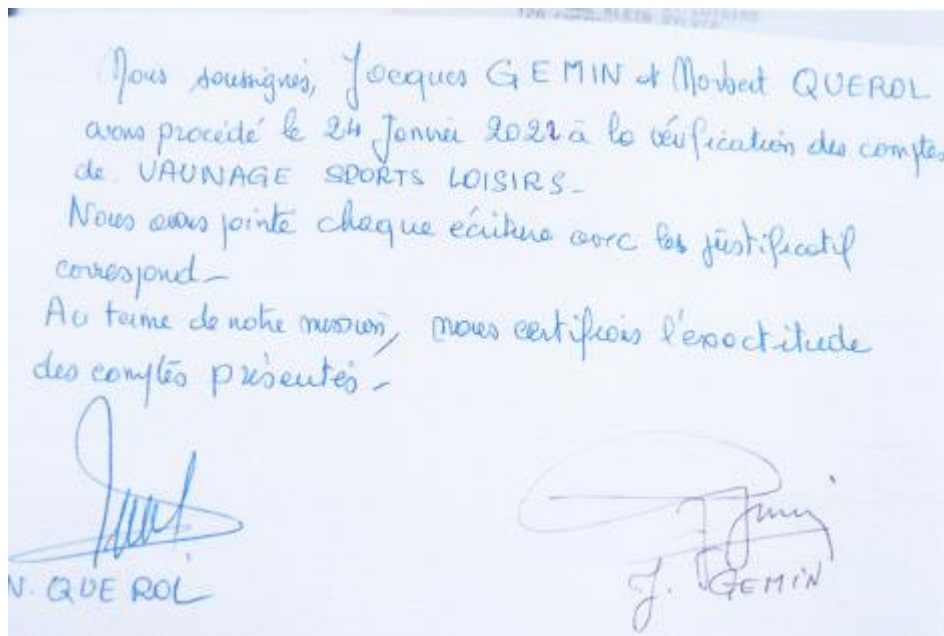 Nous soussignés, Jacques GEMIN et Norbert QUEROL
avons procédé le 24 Janvier 2022 à la vérification des comptes
de VAUNAGE SPORTS LOISIRS-
Nous avons pointé chaque écriture avec les justificatif
correspond-
Au terme de notre mission, nous certifions l'exactitude
des comptes présentés-
N. QUEROL
J. GEMIN